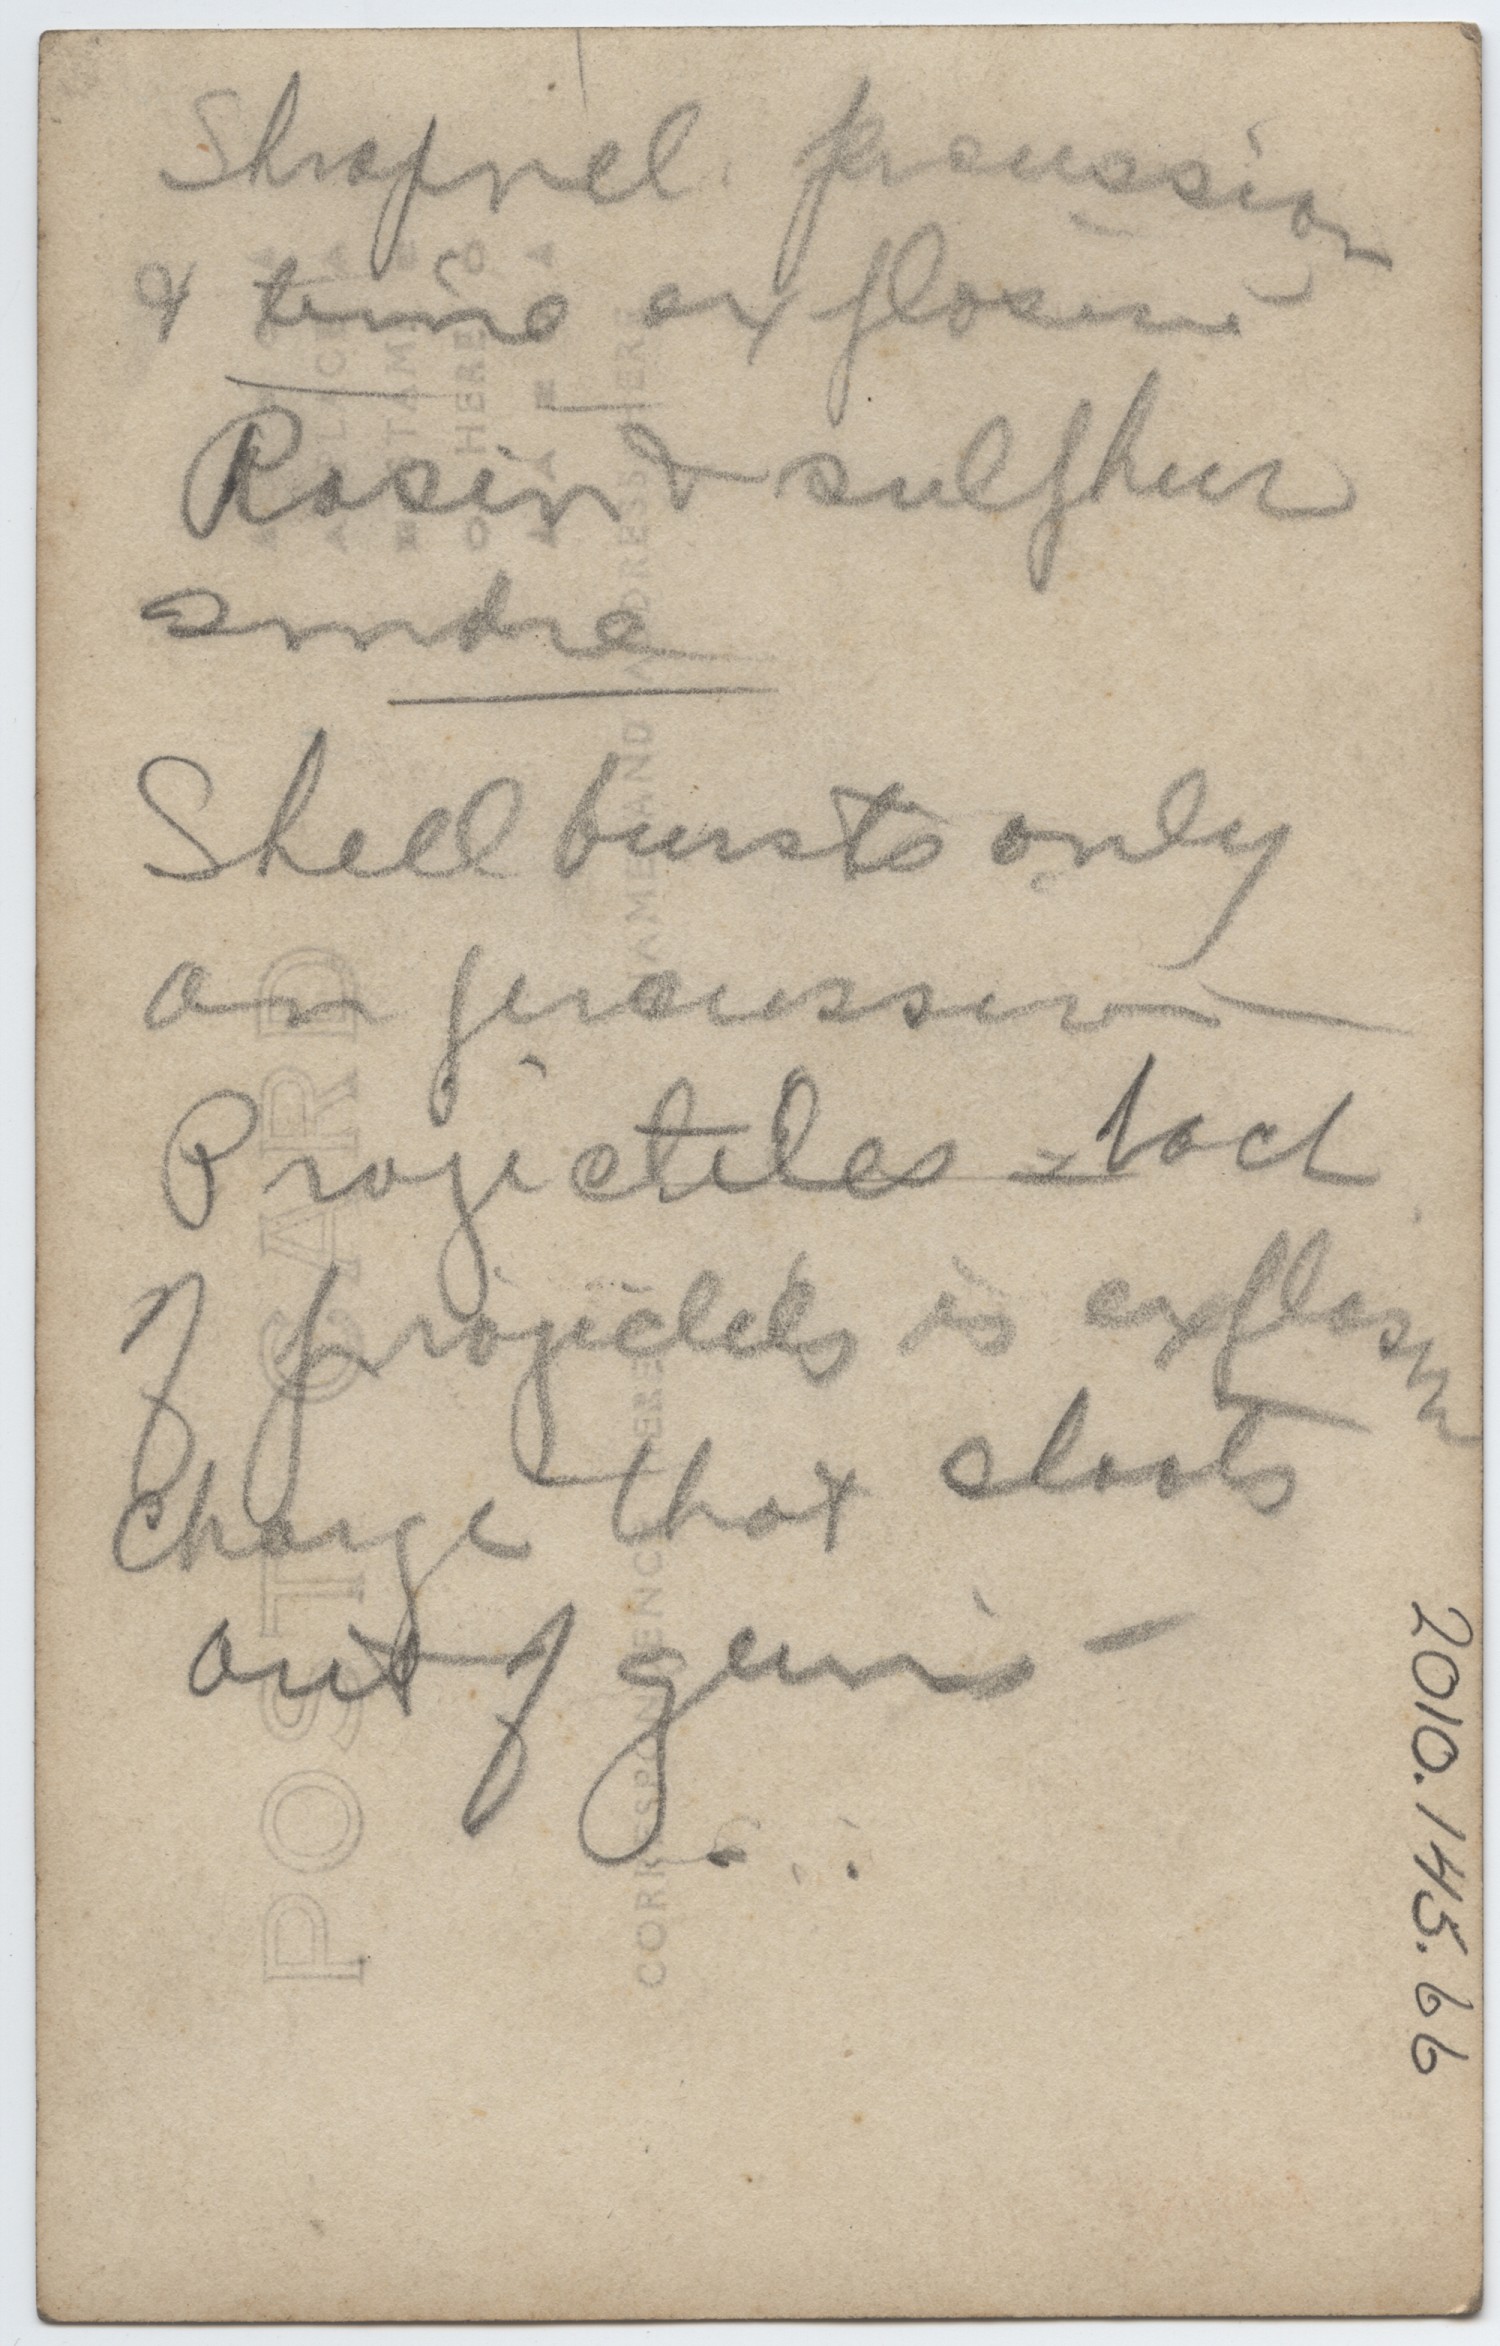 Shrapnel percussion
& time explosive
Rosin & sulphur
smoke
Shell bursts only
on percussion
Projectiles – back
of projectiles is explosive
charge that shoots
out of guns –
2010.145.66
POST CARD
CORRESPONDENCE HERE
NAME AND ADDRESS HERE
PLACE
STAMP
HERE